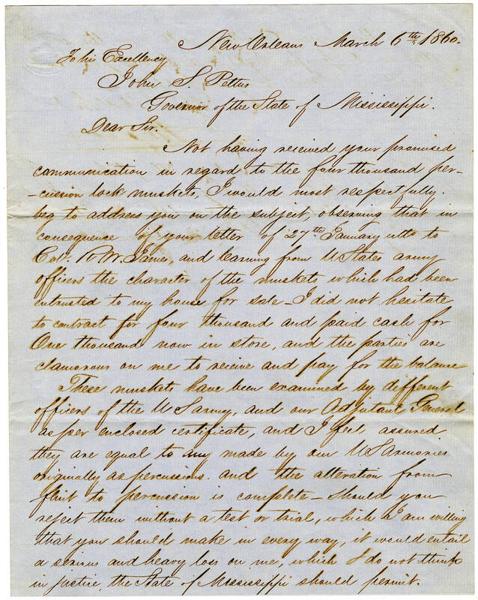 New Orleans March 6th 1860.
To his Excellency
John J. Pettus
Governor of the State of Mississippi.
Dear Sir.
Not having received your promised
communication in regard to the four thousand per-
-cussion lock muskets, I would most respectfully
beg to address you on the subject, observing that in
consequence of your letter of 27th January ulto to
W. James, and learning from U States army
officers the character of the muskets which had been
intrusted to my house for sale - I did not hesitate
to contract for four thousand and paid cash for
One thousand now in store, and the parties are
clamorous on me to receive and pay for the balance
These muskets have been examined by different
officers of the U S army, and our Adjutant General
as per enclosed certificate, and I feel assured
they are equal to any made by our U S Armories
originally as percussions. and the alteration from
flint to percussion is complete - Should you
reject them without a test or trial, which I am willing
that you should make in every way, it would entail
a serious and heavy loss on me, which I do not think
in justice the State of Mississippi should permit.